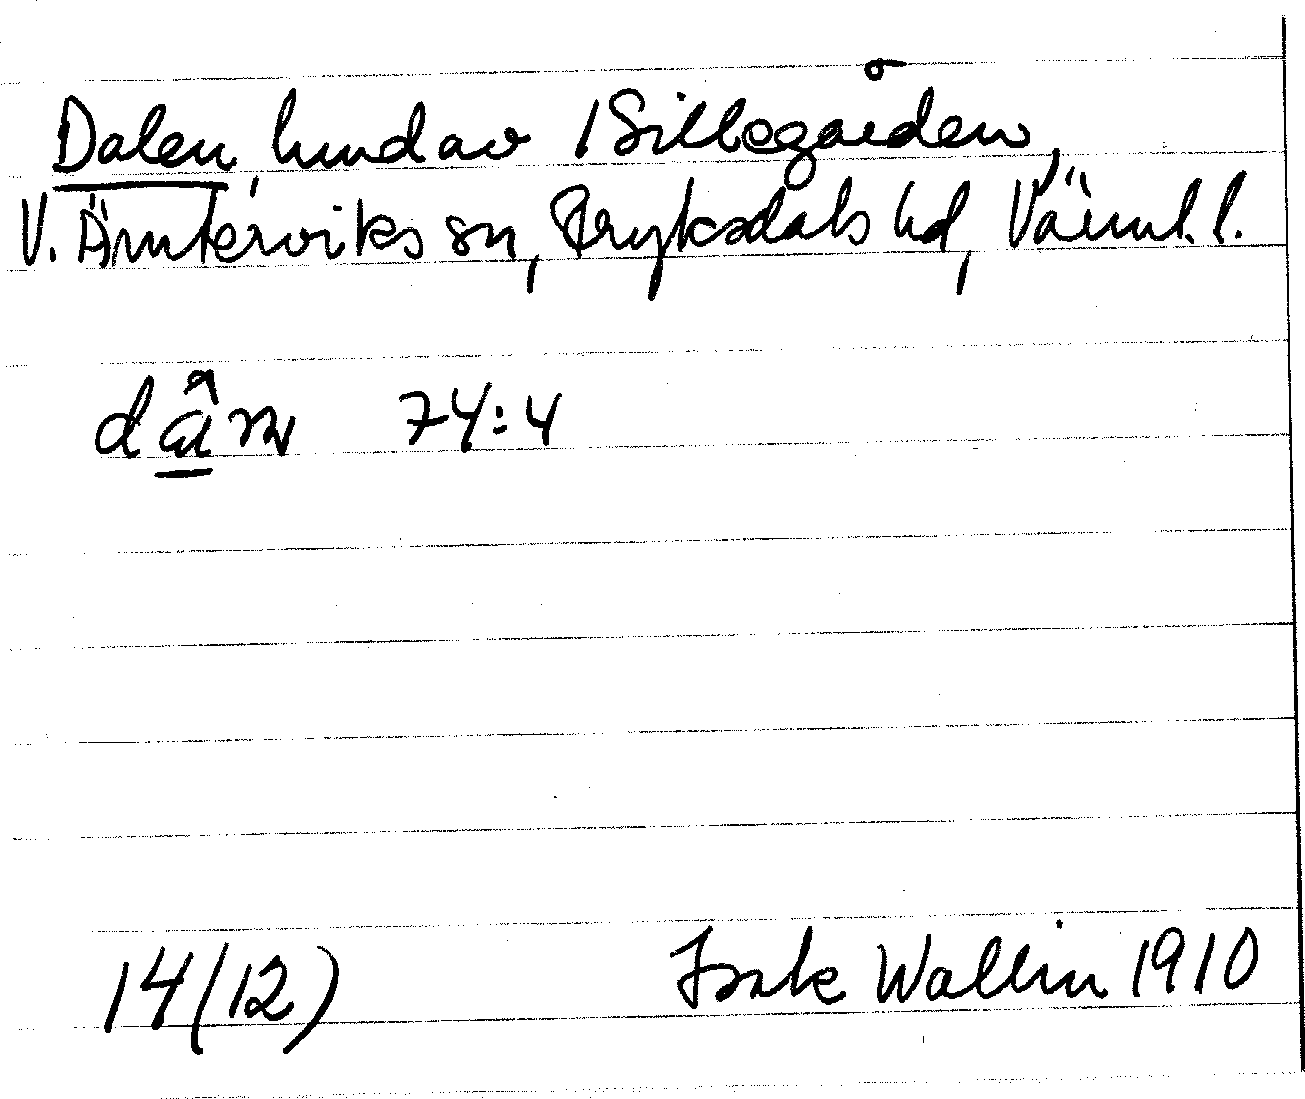 Dalen, hmd av 1 Sillegården,
V. Ämterviks sn, Fryksdals hd, Värml. l.
74:4
14(12) Wallin 1910